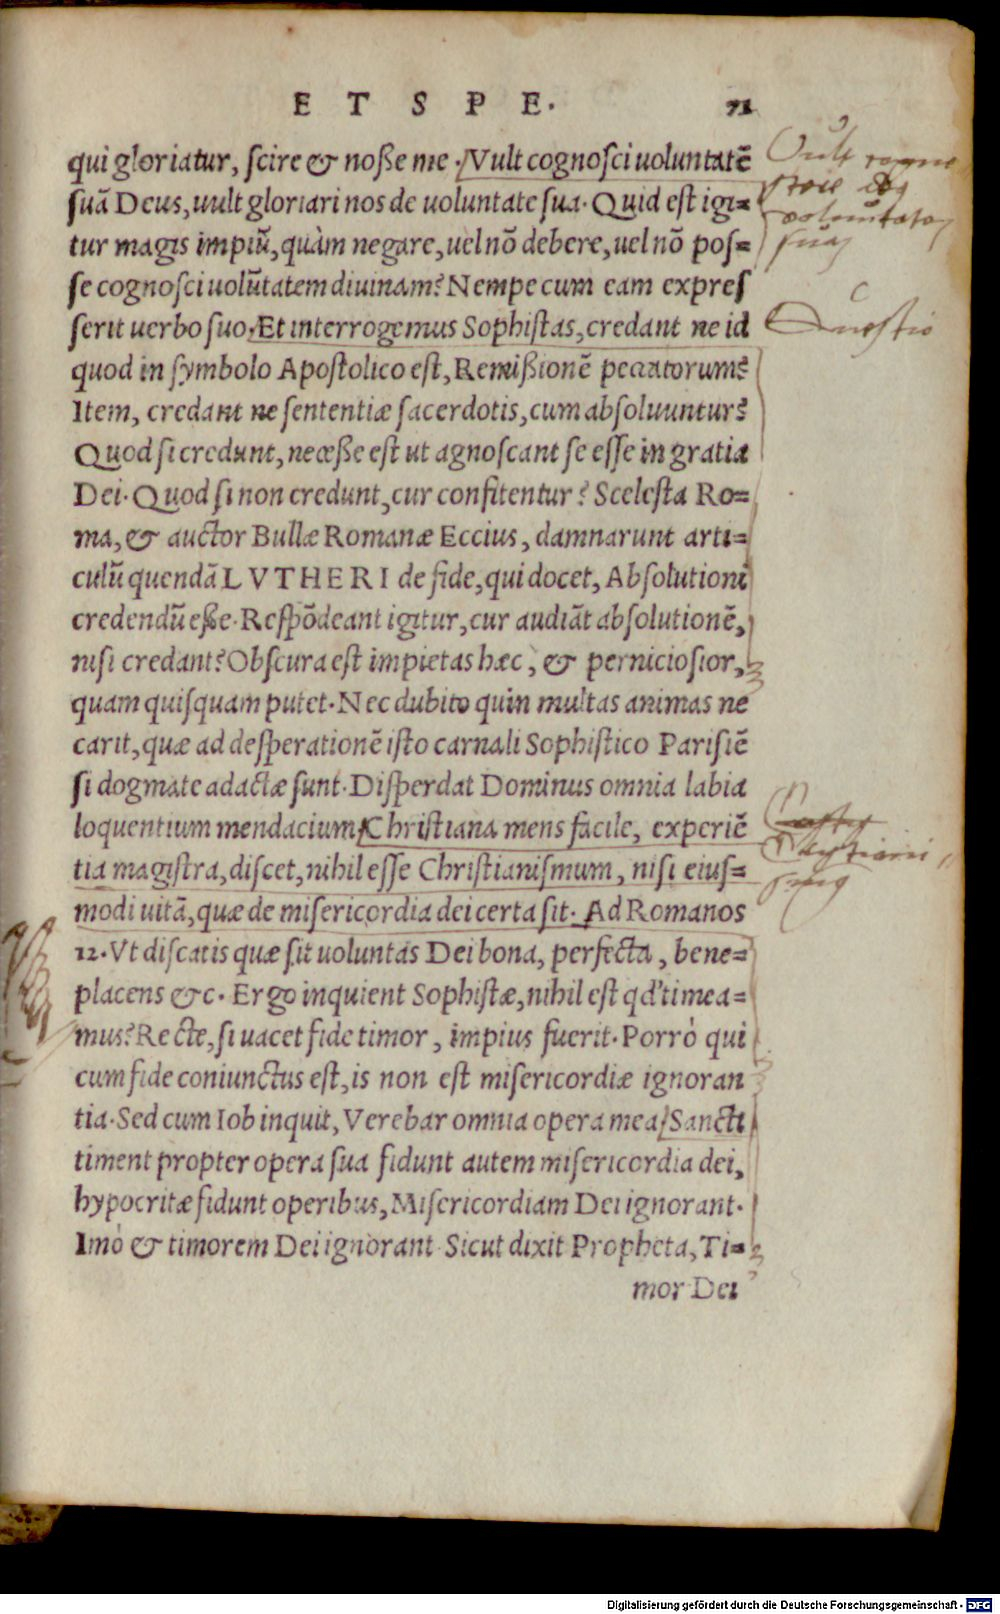 ET SPE. 71
qui gloriatur, scire & noße me. Vult cognosci uoluntatē
suā Deus, uult gloriari nos de uoluntate sua. Quid est igi=
tur magis impiū, quàm negare, uel nō debere, uel nō pos=
se cognosci uolūtatem diuinam? Nempe cum eam expres
serit uerbo suo. Et interrogemus Sophistas, credant ne id
quod in symbolo Apostolico est, Remißionē peccatorum?
Item, credant ne sententiæ sacerdotis, cum absoluuntur?
Quod si credunt, neceße est ut agnoscant se esse in gratia
Dei. Quod si non credunt, cur confitentur? Scelesta Ro=
ma, & auctor Bullæ Romanæ Eccius, damnarunt arti=
culū quendā LVTHERI de fide, qui docet, Absolutioni
credendū eße. Respōdeant igitur, cur audiāt absolutionē,
nisi credant? Obscura est impietas hæc, & perniciosior,
quam quisquam putet. Nec dubito quin multas animas ne
carit, quæ ad desperationē isto carnali Sophistico Parisiē
si dogmate adactæ sunt. Disperdat Dominus omnia labia
loquentium mendacium. Christiana mens facile, experiē
tia magistra, discet, nihil esse Christianismum, nisi eius=
modi uitā, quæ de misericordia dei certa sit. Ad Romanos
12. Vt discatis quæ sit uoluntas Dei bona, perfecta, bene=
placens &c. Ergo inquient Sophistæ, nihil est qd' timea=
mus? Recte, si uacet fide timor, impius fuerit. Porrò qui
cum fide coniunctus est, is non est misericordiæ ignoran
tia. Sed cum Iob inquit, Verebar omnia opera mea. Sancti
timent propter opera sua fidunt autem misericordia dei,
hypocritæ fidunt operibus, Misericordiam Dei ignorant.
Imò & timorem Dei ignorant. Sicut dixit Propheta, Ti=
mor Dei
Vult cogno
voluntatē
suā
Questio
Christiani
smus
Digitalisierung gefördert durch die Deutsche Forschungsgemeinschaft - DFG